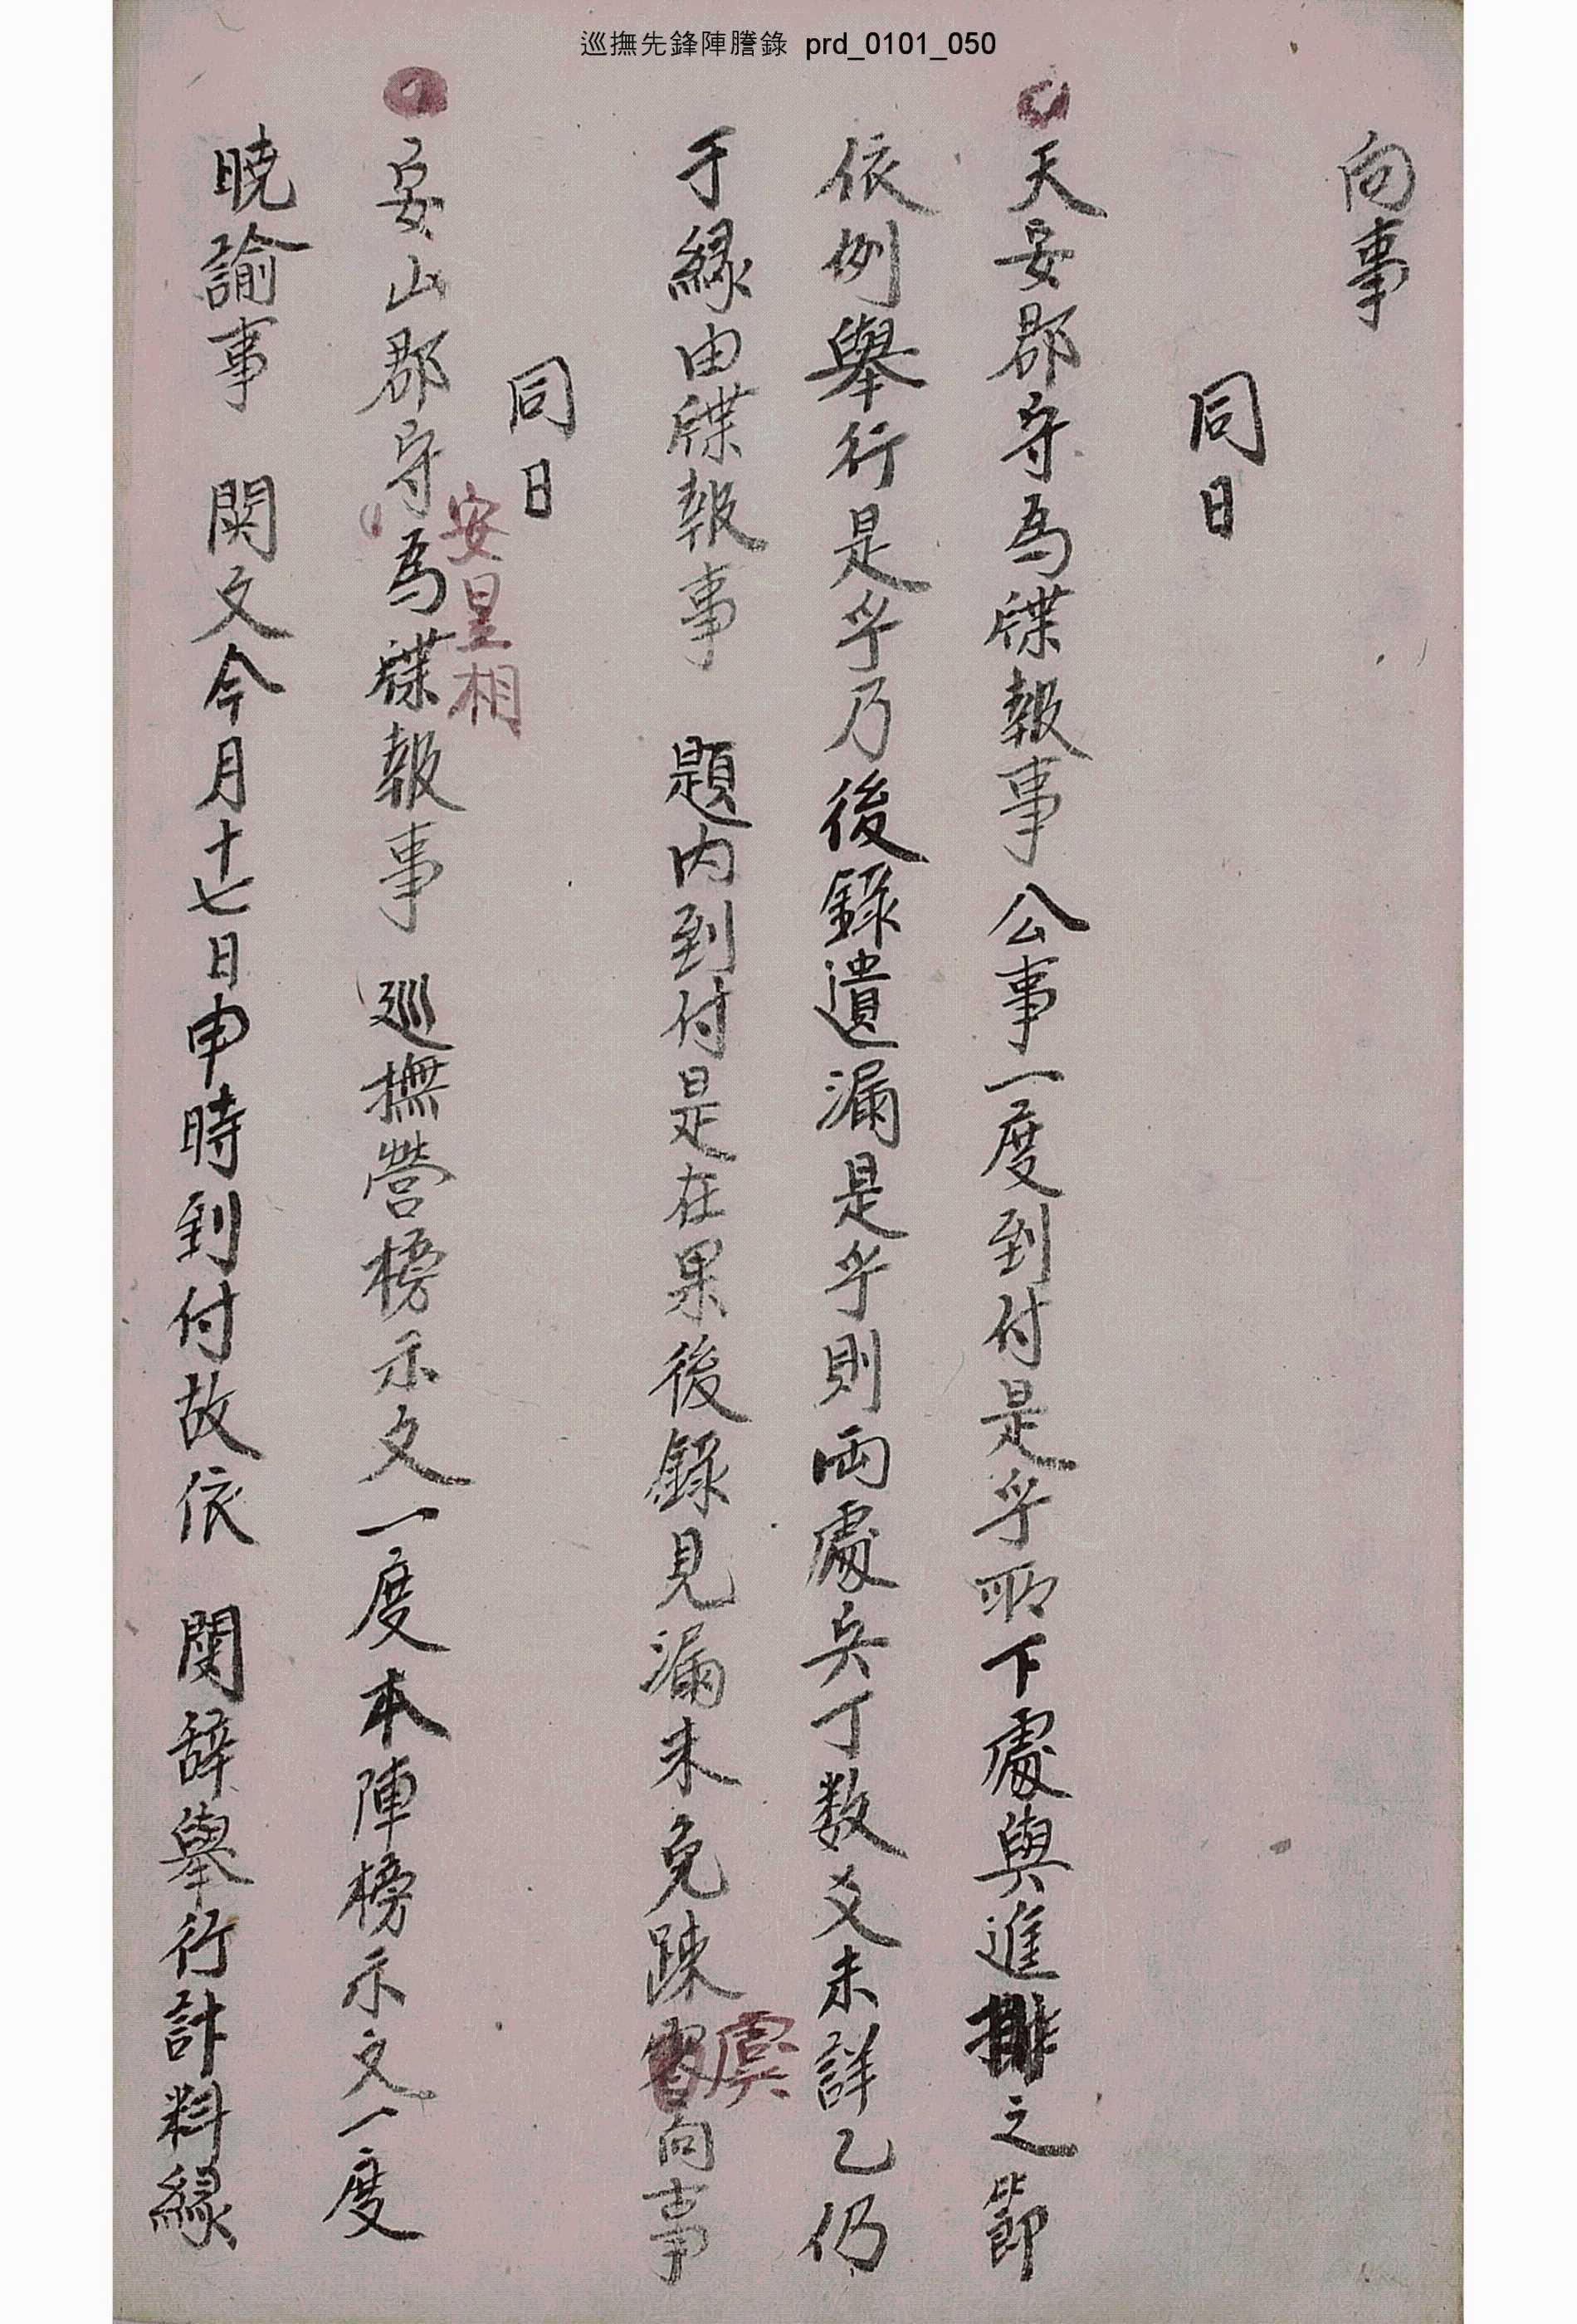 巡撫先鋒陣謄錄 prd_0101_050
向事
同日
天安郡守爲牒報事公事一度到付是乎所下處與進排之節
依例擧行是乎乃後錄遺漏是乎則両處兵丁数爻未詳乙仍
于緣由牒報事 題內到付是在果後錄見漏未免踈虞向事
同日
安山郡守爲牒報事 巡撫營榜示文一度本陣榜示文一度
安星相
曉諭事 関文今月十七日申時到付故依 関辞擧行計料緣